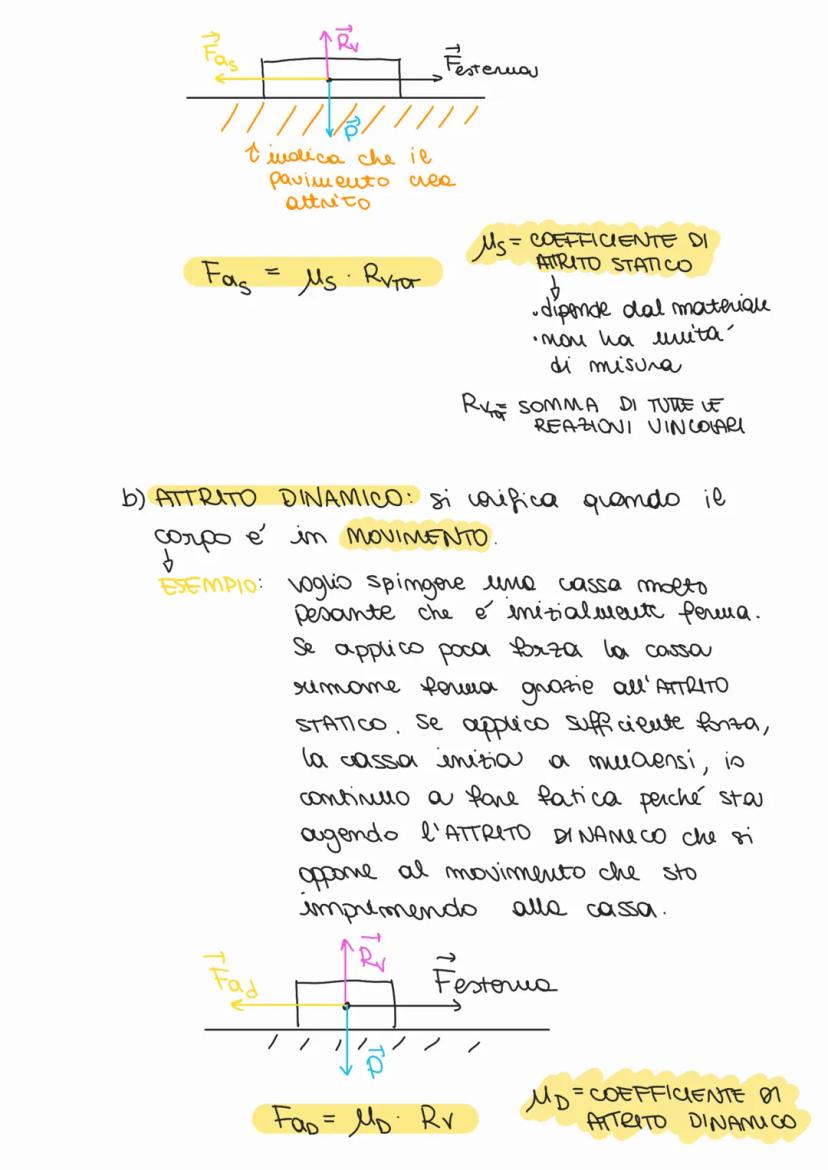 F⃗as R⃗v F⃗esterna
P⃗
↑ indica che il
pavimento crea
attrito
Fas = μs · RvTOT
μs = COEFFICIENTE DI
ATTRITO STATICO
↓
• dipende dal materiale
• non ha unita'
di misura
RvTOT = SOMMA DI TUTTE LE
REAZIONI VINCOLARI
b) ATTRITO DINAMICO: si verifica quando il
corpo é in MOVIMENTO.
↓
ESEMPIO: voglio spingere una cassa molto
pesante che é inizialmente ferma.
Se applico poca forza la cassa
rimane ferma grazie all'ATTRITO
STATICO. Se applico sufficiente forza,
la cassa inizia a muoversi, io
continuo a fare fatica perché sta
agendo l'ATTRITO DINAMICO che si
oppone al movimento che sto
imprimendo alla cassa.
F⃗ad R⃗v F⃗esterna
P⃗
FaD = μD · Rv
μD = COEFFICIENTE DI
ATTRITO DINAMICO